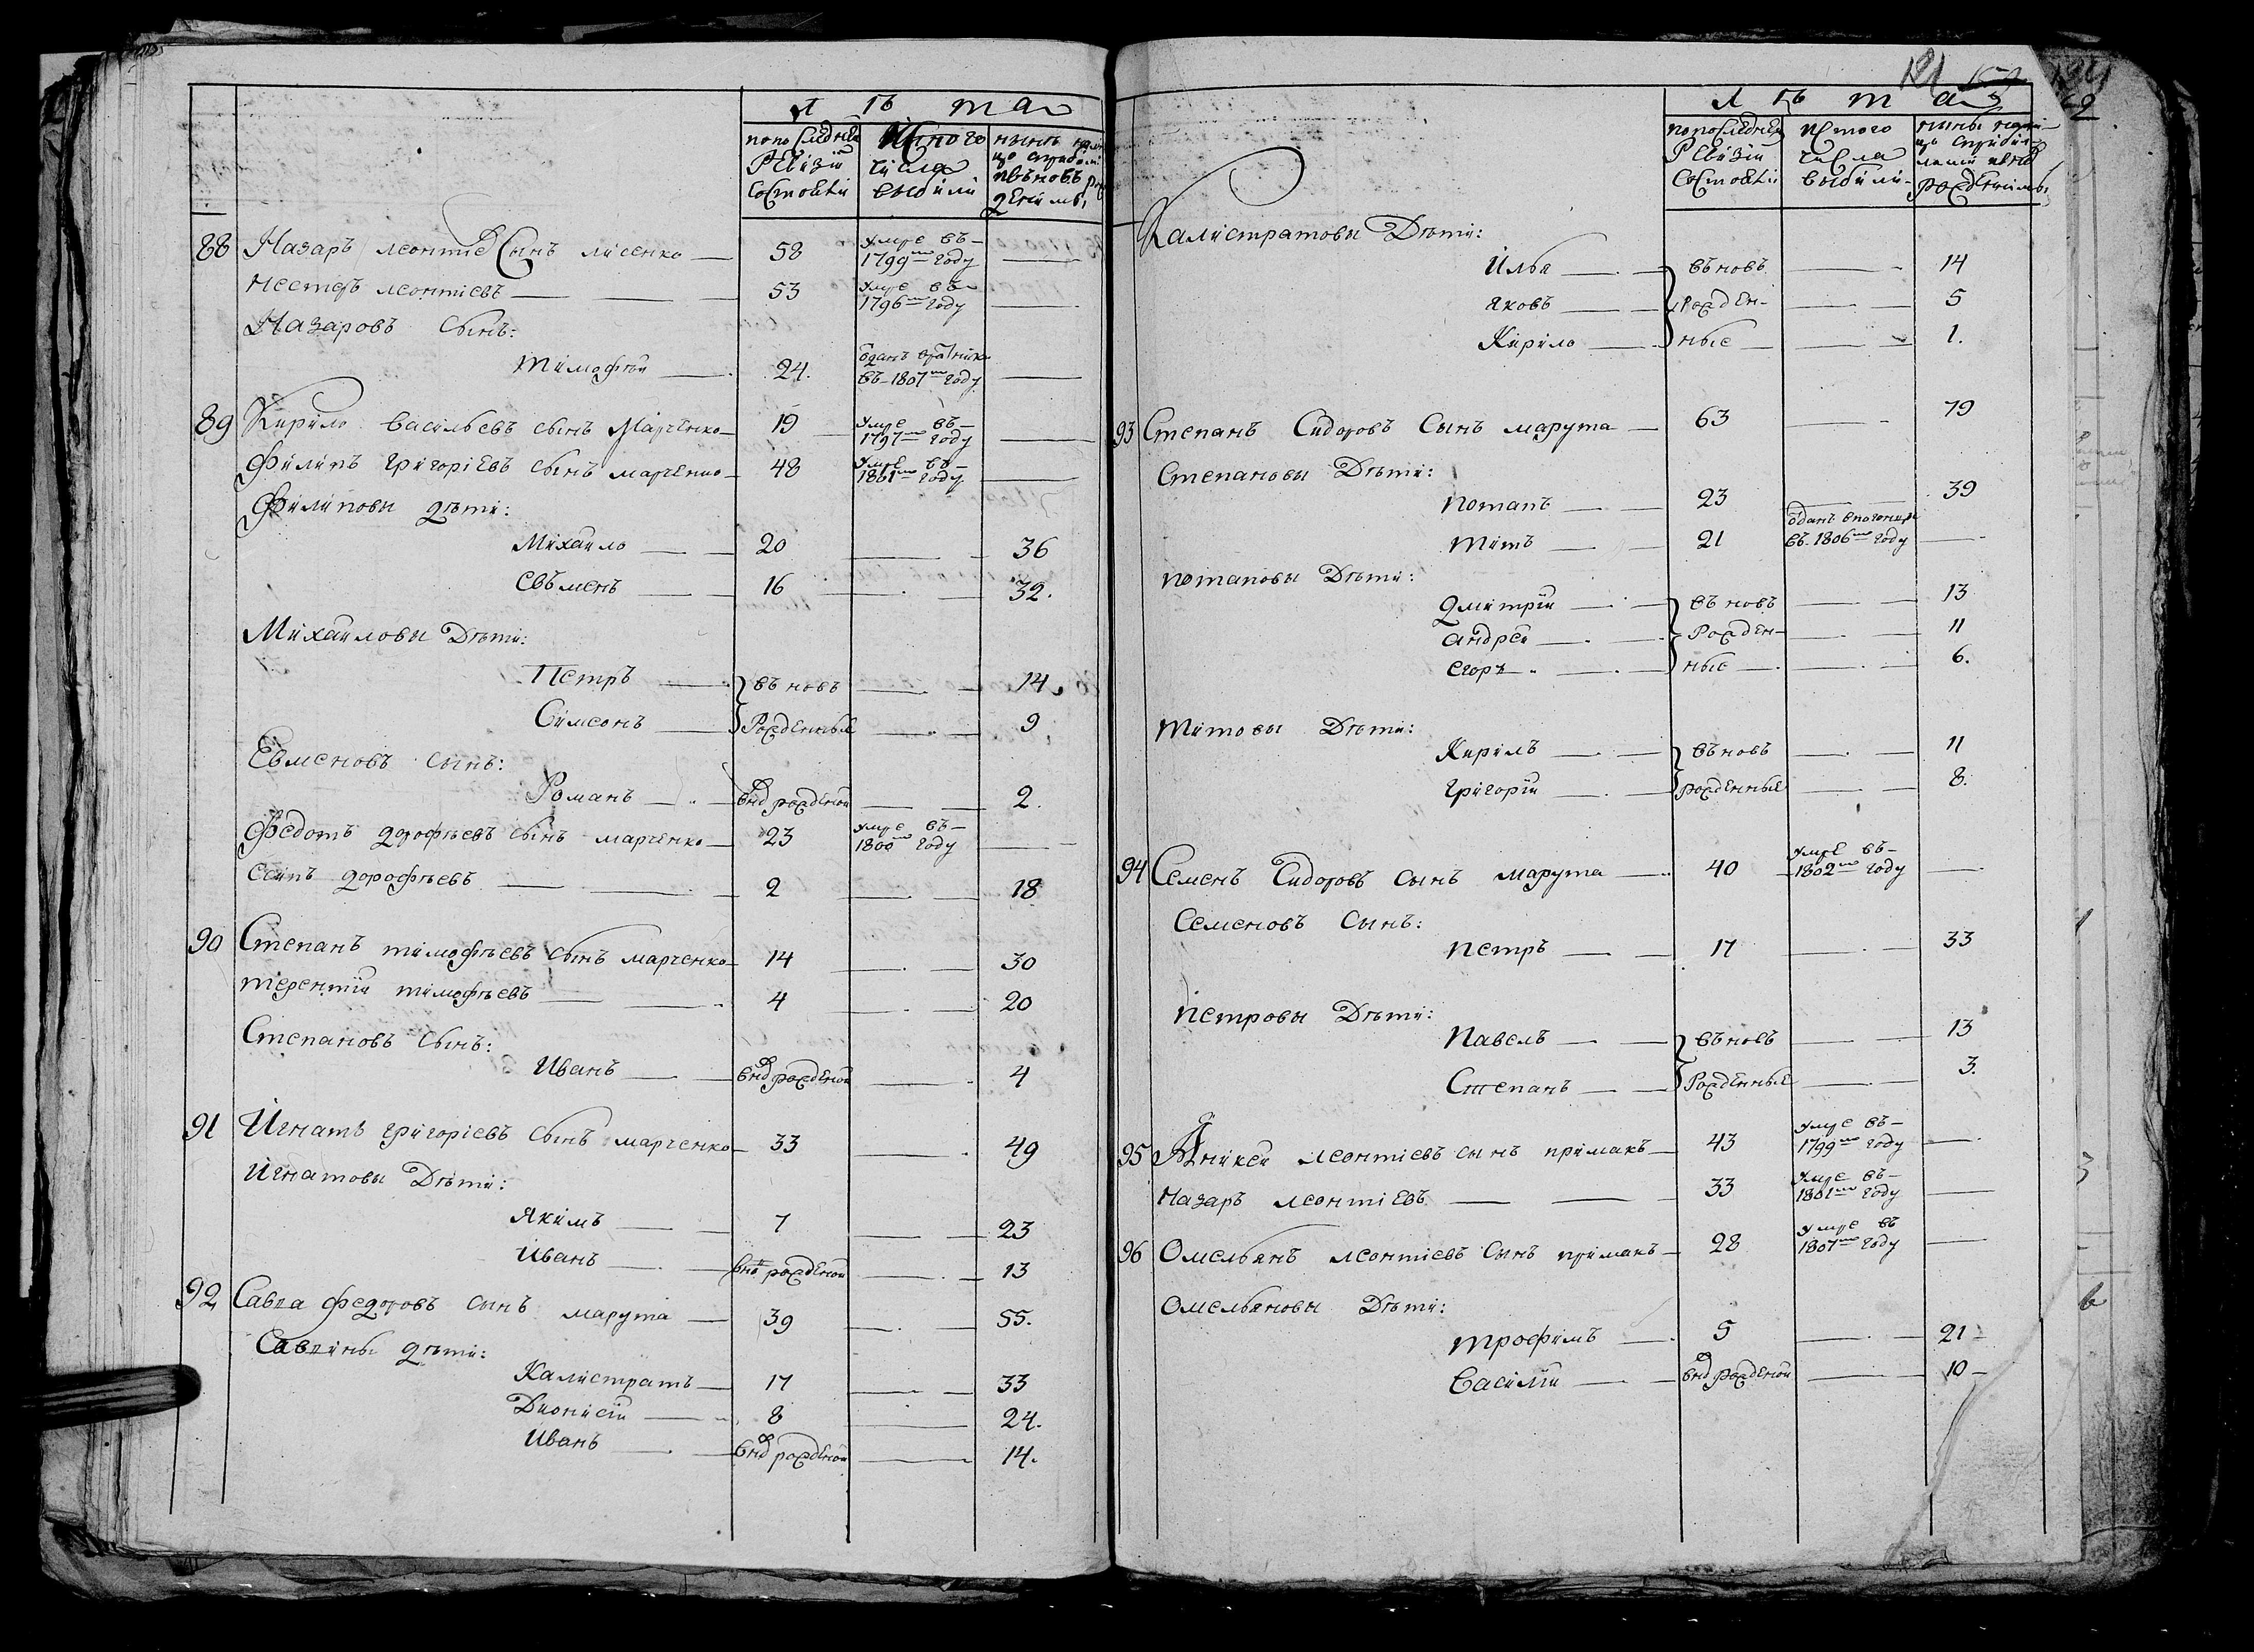 Л ѣ т а
попоследнеи Ревизіи состояли
исътого числа выбыли
88 Назаръ леонтіе Сынъ лисенко 58 умре въ 1799мъ году
Нестеръ леонтіевъ 53 умре въ 1796мъ году
Назаровъ Сынъ:
Тимофѣи 24. въ 1807м году
89 Кирило Васильевъ сынъ Марченко 19 умре въ 1797мъ году
Филипъ григоріевъ сынъ марченко 48 умре въ 1801мъ году
Филиповы дѣти:
Михаило 20 36
Евъменъ 16 32.
Михаиловы Дѣти:
Петръ въновь 14.
Симеонъ Рожденные 9
Евменовъ сынъ:
Романъ внов рожденои 2.
Федотъ дорофѣевъ сынъ марченко 23 умре въ 1800м году
Есипъ дорофѣевъ 2 18
90 Степанъ тимофѣевъ сынъ марченко 14 30
терентіи тимофѣевъ 4 20
Степановъ Сынъ:
Иванъ внов рожденои 4
91 Игнатъ григоріевъ сынъ марченко 33 49
Игнатовы Дѣти:
Якимъ 7 23
Иванъ внов рожденои 13
92 Савва федоровъ сынъ марута 39 55.
Саввины дѣти:
Калистратъ 17 33
Дионисіи 8 24.
Иванъ внов рожденои 14.
181
Л ѣ т а
попоследнеи Ревизіи состояли
исътого числа выбыли
Калистратовы Дѣти:
Илья въновь 14
яковъ Рожден- 5
Кирило ные 1.
93 Степанъ Сидоровъ Сынъ марута 63 79
Степановы Дѣти:
потапъ 23 39
титъ 21 въ 1806м году
потаповы Дѣти:
дмитріи въновь 13
андреи Рожден- 11
егоръ ные 6.
Титовы Дѣти:
Кирилъ въновь 11
григоріи рожденные 8.
94 Семенъ Сидоровъ сынъ марута 40 умре въ 1802м году
Семеновъ Сынъ:
петръ 17 33
петровы Дѣти:
павелъ въновь 13
Степанъ Рожденные 3.
95 леонтіевъ сынъ примакъ 43 умре въ 1799м году
назаръ леонтіевъ 33 умре въ 1801м году
96 Омельянъ леонтіевъ сынъ примакъ 28 умре въ 1807м году
Омельяновы Дѣти:
трофимъ 5 21
Василіи внов рожденои 10